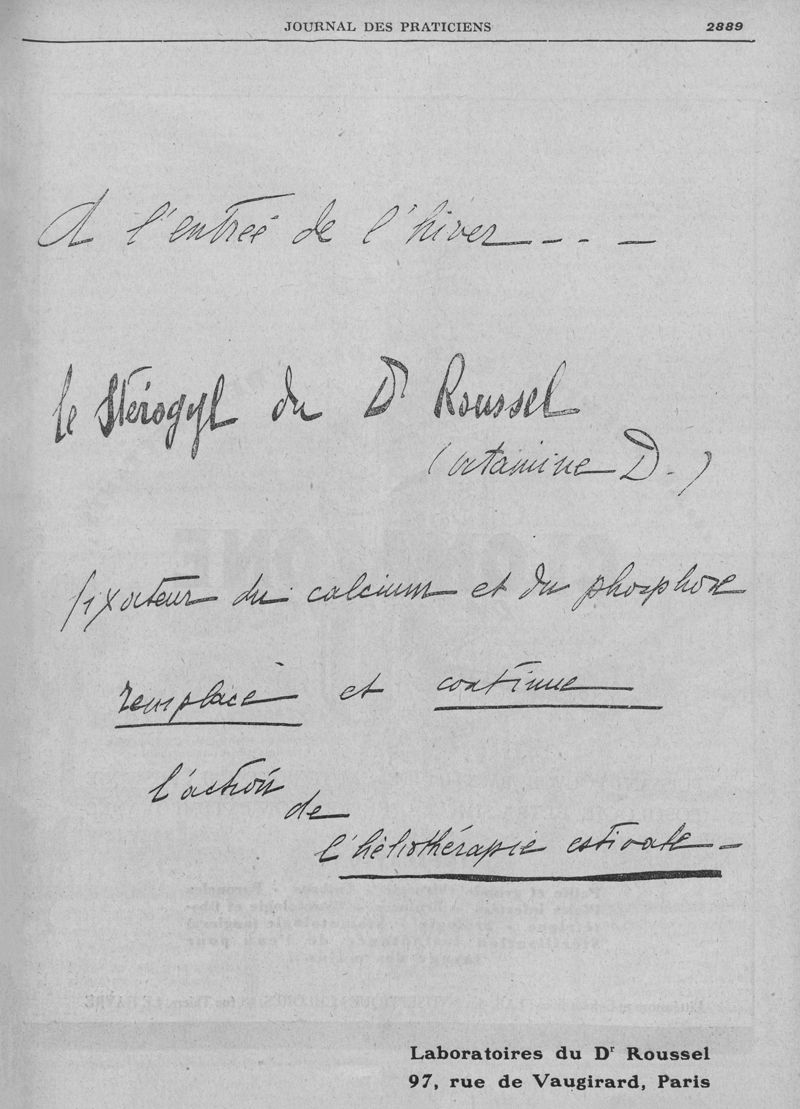 JOURNAL DES PRATICIENS 2889
A l'entrée de l'hiver - - - -
le Stérogyl du Dr Roussel
(vitamine D.)
fixateur du calcium et du phosphore
remplace et continue
l'action
de
l'héliothérapie estivale -
Laboratoires du Dr Roussel
97, rue de Vaugirard, Paris